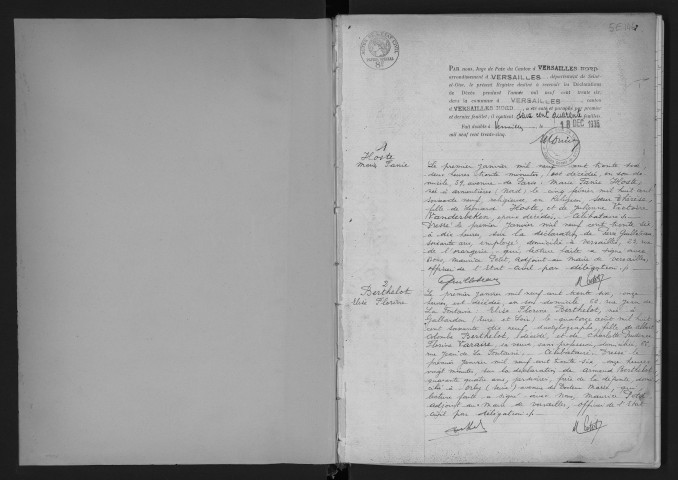 PAR nous, Juge de Paix du Canton d VERSAILLES NORD,
arrondissement d VERSAILLES, département de Seine-
et-Oise, le présent Registre destiné à recevoir les Déclarations
de Décès pendant l'année mil neuf cent trente six,
dans la commune d VERSAILLES, canton
d VERSAILLES NORD, a été coté et paraphé par premier
et dernier feuillet; il contient deux cent quarante feuillets.
Fait double à Versailles, le 18 DEC 1935
mil neuf cent trente-cinq.
1
Hoste
Marie Fanie
Le premier janvier mil neuf cent trente six,
deux heures trente minutes, est décédée, en son do-
micile, 24, avenue de Paris: Marie Fanie Hoste,
née à Armentières (Nord) le cinq février mil huit cent
soixante neuf, religieuse, en Religion, Sœur Thérèse,
fille de Léonard Hoste, et de
Vanderbeken, époux décédés. Célibataire.
Dressé le premier janvier mil neuf cent trente six
à dix heures, sur la déclaration de
soixante ans, employé, domicilié à Versailles, 22 rue
de l'orangerie, qui, lecture faite a signé avec
Nous, Maurice Petit, adjoint au maire de Versailles,
officier de l'Etat-Civil par délégation
2
Berthelot
Elise Florine
Le premier janvier mil neuf cent trente six, onze
heures, est décédée, en son domicile, rue Jean de
La Fontaine: Elise Florine Berthelot, née à
Gallardon (Eure et Loir) le quatorze août mil huit
cent soixante dix neuf, dactylographe, fille de Albert
Colombe Berthelot, décédé, et de Charlotte
Florine Varaire, sa veuve, sans profession, domiciliée,
rue Jean de La Fontaine. Célibataire. Dressé le
premier janvier mil neuf cent trente six, onze heures
vingt minutes, sur la déclaration de Armand Berthelot
quarante quatre ans, jardinier, frère de la défunte, domi-
cilié à Orly (Seine) avenue du Docteur Marie, qui
lecture faite a signé avec Nous, Maurice Petit
adjoint au Maire de Versailles, officier de l'Etat
civil par délégation